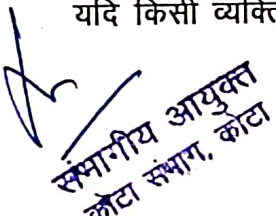 यदि किसी व्यक्ति
संभागीय आयुक्त
कोटा संभाग, कोटा